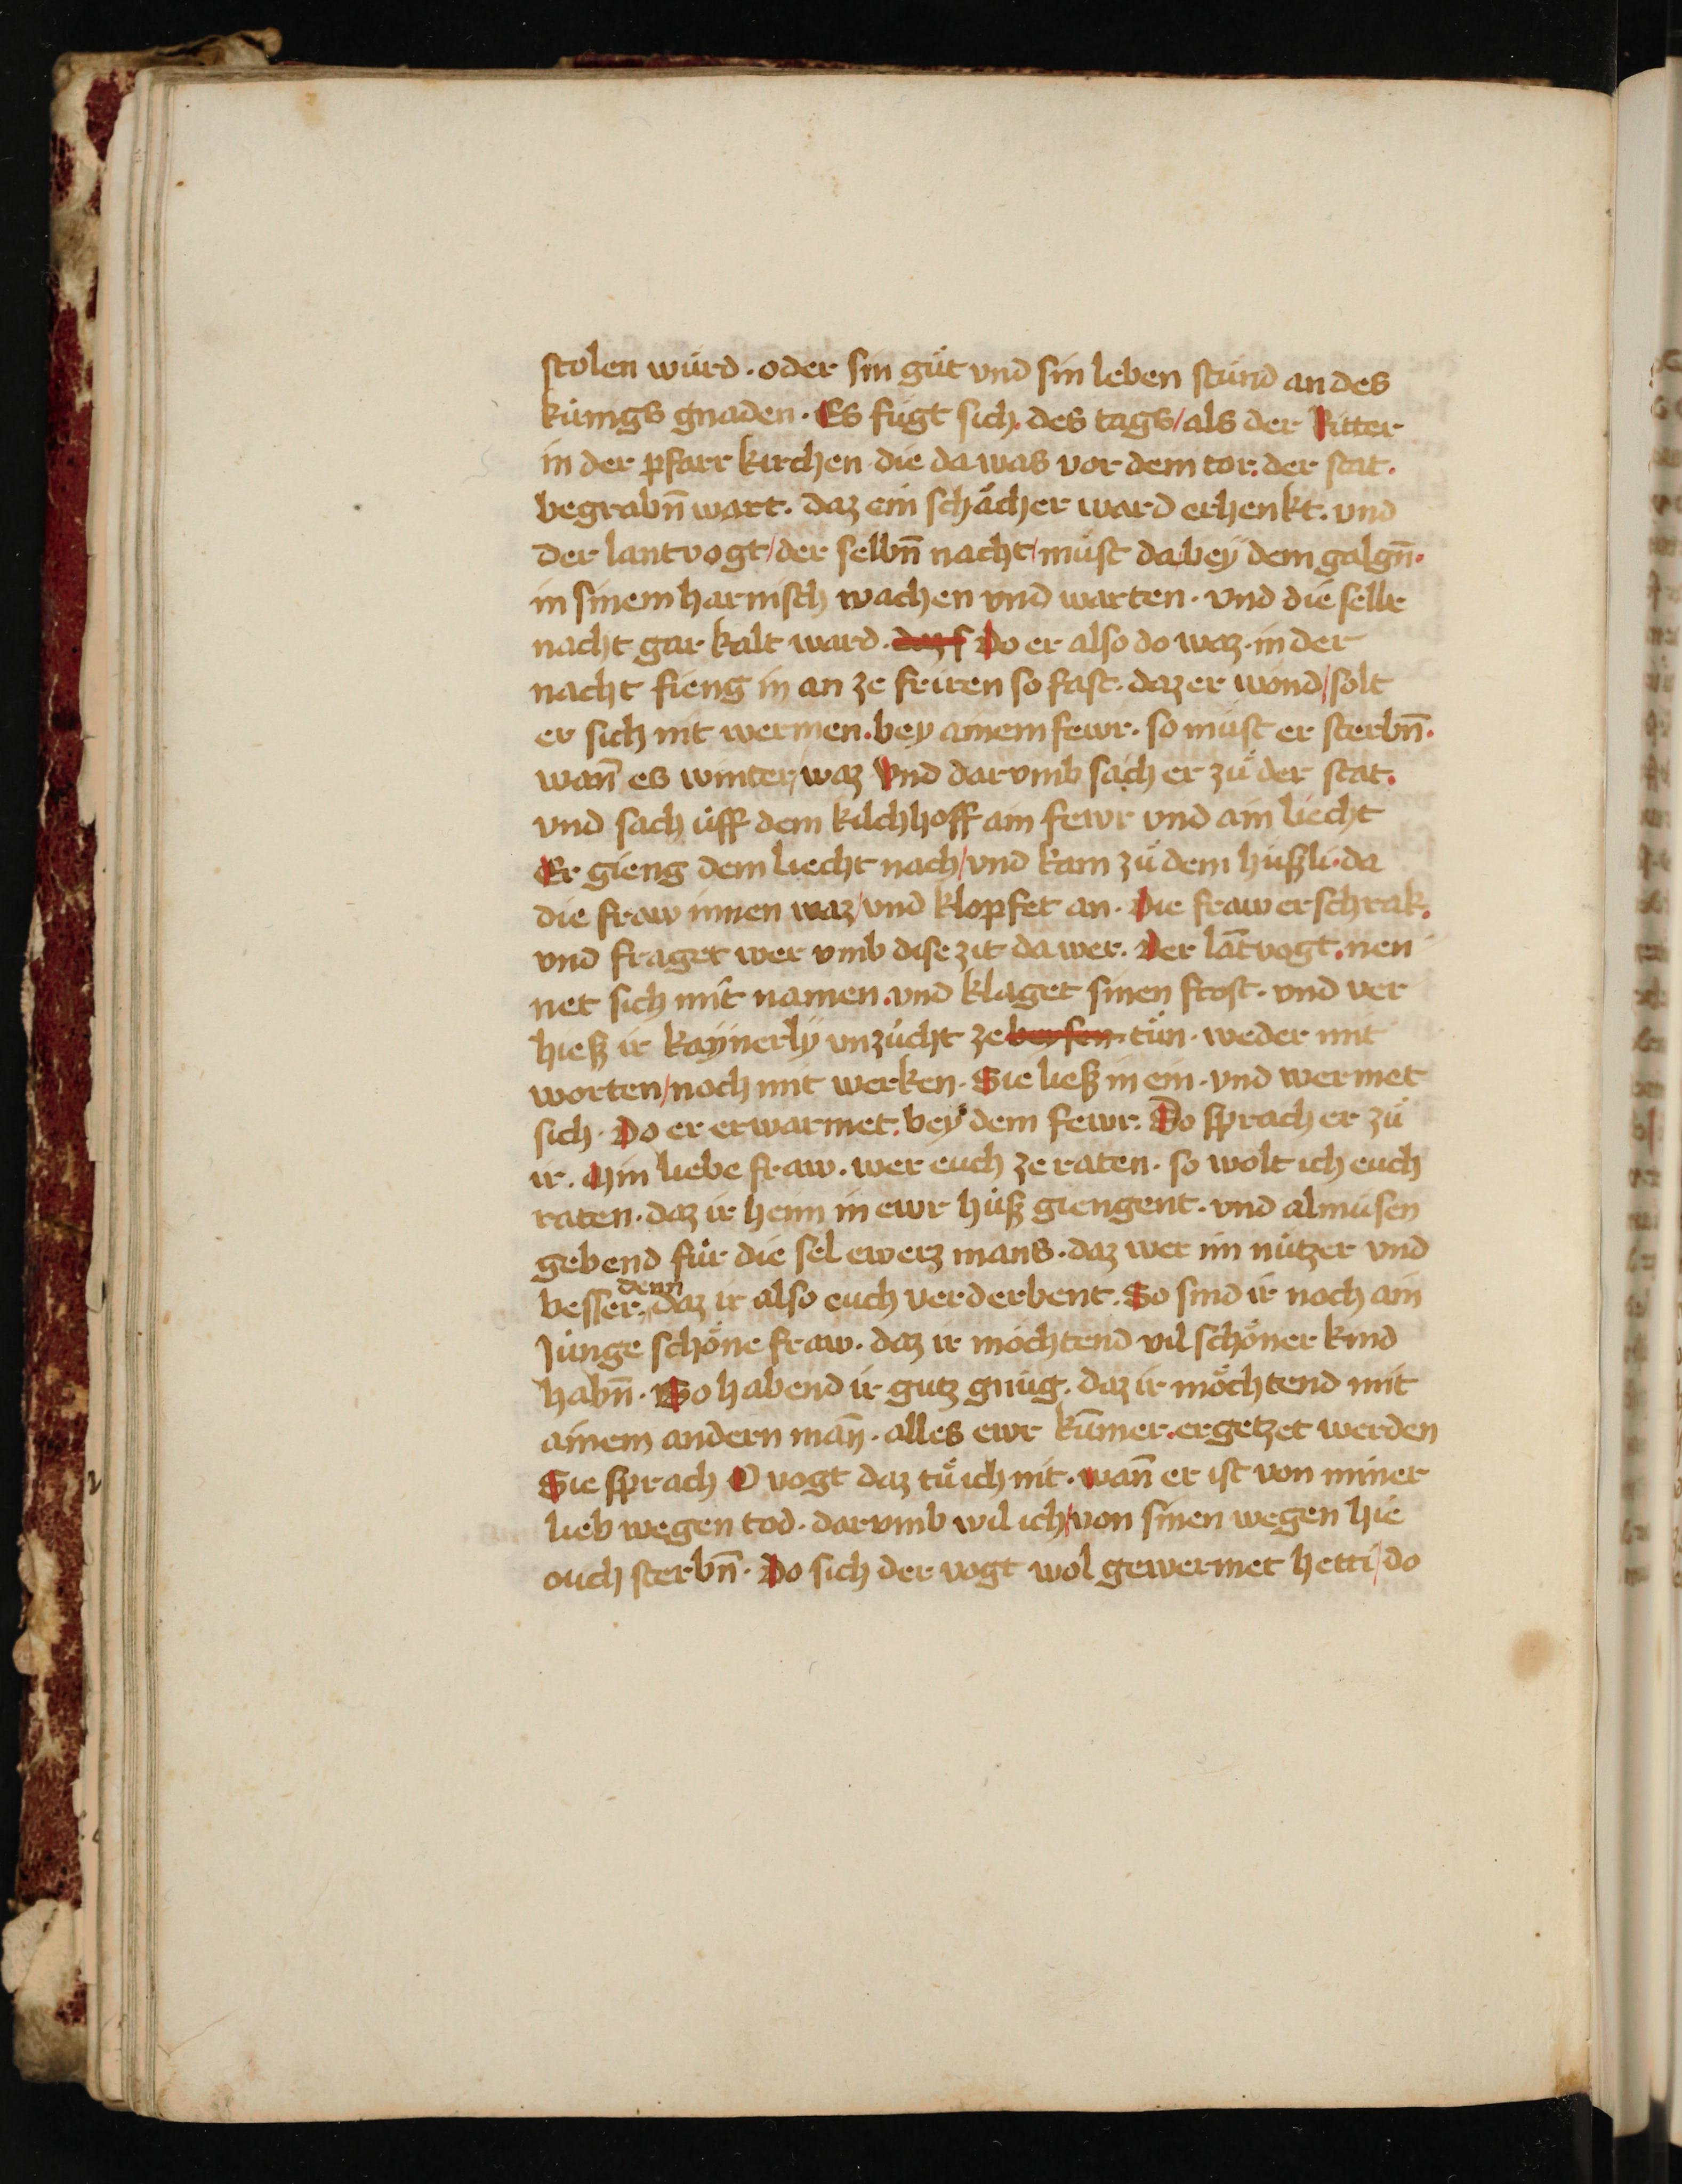 stolen würd · oder sin guͦt vnd sin leben stuͤnd an des
küngs gnaden · Es fuͤgt sich. des tags / als der Ritter
in der pfarr kirchen · die da was vor dem tor. der stat.
begrabn̄ wart · daz ein schächer ward erhenkt · vnd
der lantvogt / der selbn̄ nacht / muͤst da bey dem galgn̄.
in sinem harnisch wachen vnd warten · vnd die selbe
nacht gar kalt ward · daz s Do er also do waz · in der
nacht fieng in an ze friren so fast · daz er wond / solt
er sich nit wermen. bey ainem fewr · so muͤst er sterbn̄.
wan̄ es winter / waz Vnd darvmb sach er zuͦ der stat.
vnd sach uff dem kilchhoff ain fewr vnd ain liecht
Er gieng dem liecht nach / vnd kam zuͦ dem hüßli · da
die fraw innen waz / vnd klopfet an · Die fraw erschrak.
vnd fraget wer vmb dise zit da wer · Der lātvogt. nen
net sich mit namen. vnd klaget sinen frost · vnd ver
hieß ir kaynerly vnzucht ze beysen · tuͦn · weder mit
worten / noch mit werken · Sie ließ in ein · vnd wermet
sich · Do er erwarmet. bey dem fewr. Do sprach er zuͦ
ir. Min liebe fraw · wer euch ze raten · so wolt ich euch
raten · daz ir heim in ewr huß giengent · vnd almuͦsen
gebend für die sel ewerz mans · daz wer im nützer vnd
denn
besser · daz ir also euch verderbent. So sind ir noch ain
Junge schöne fraw · daz ir möchtend vil schöner kind
habn̄ · So habend ir gutz gnuͦg · daz ir möchtend mit
ainem andern man̄ · alles ewr kūmer. ergetzet werden
Sie sprach O vogt daz tuͦ ich nit · wan̄ er ist von miner
lieb wegen tod · darvmb wil ich / von sinen wegen hie
ouch sterbn̄ · Do sich der vogt wol gewermet hetti / do